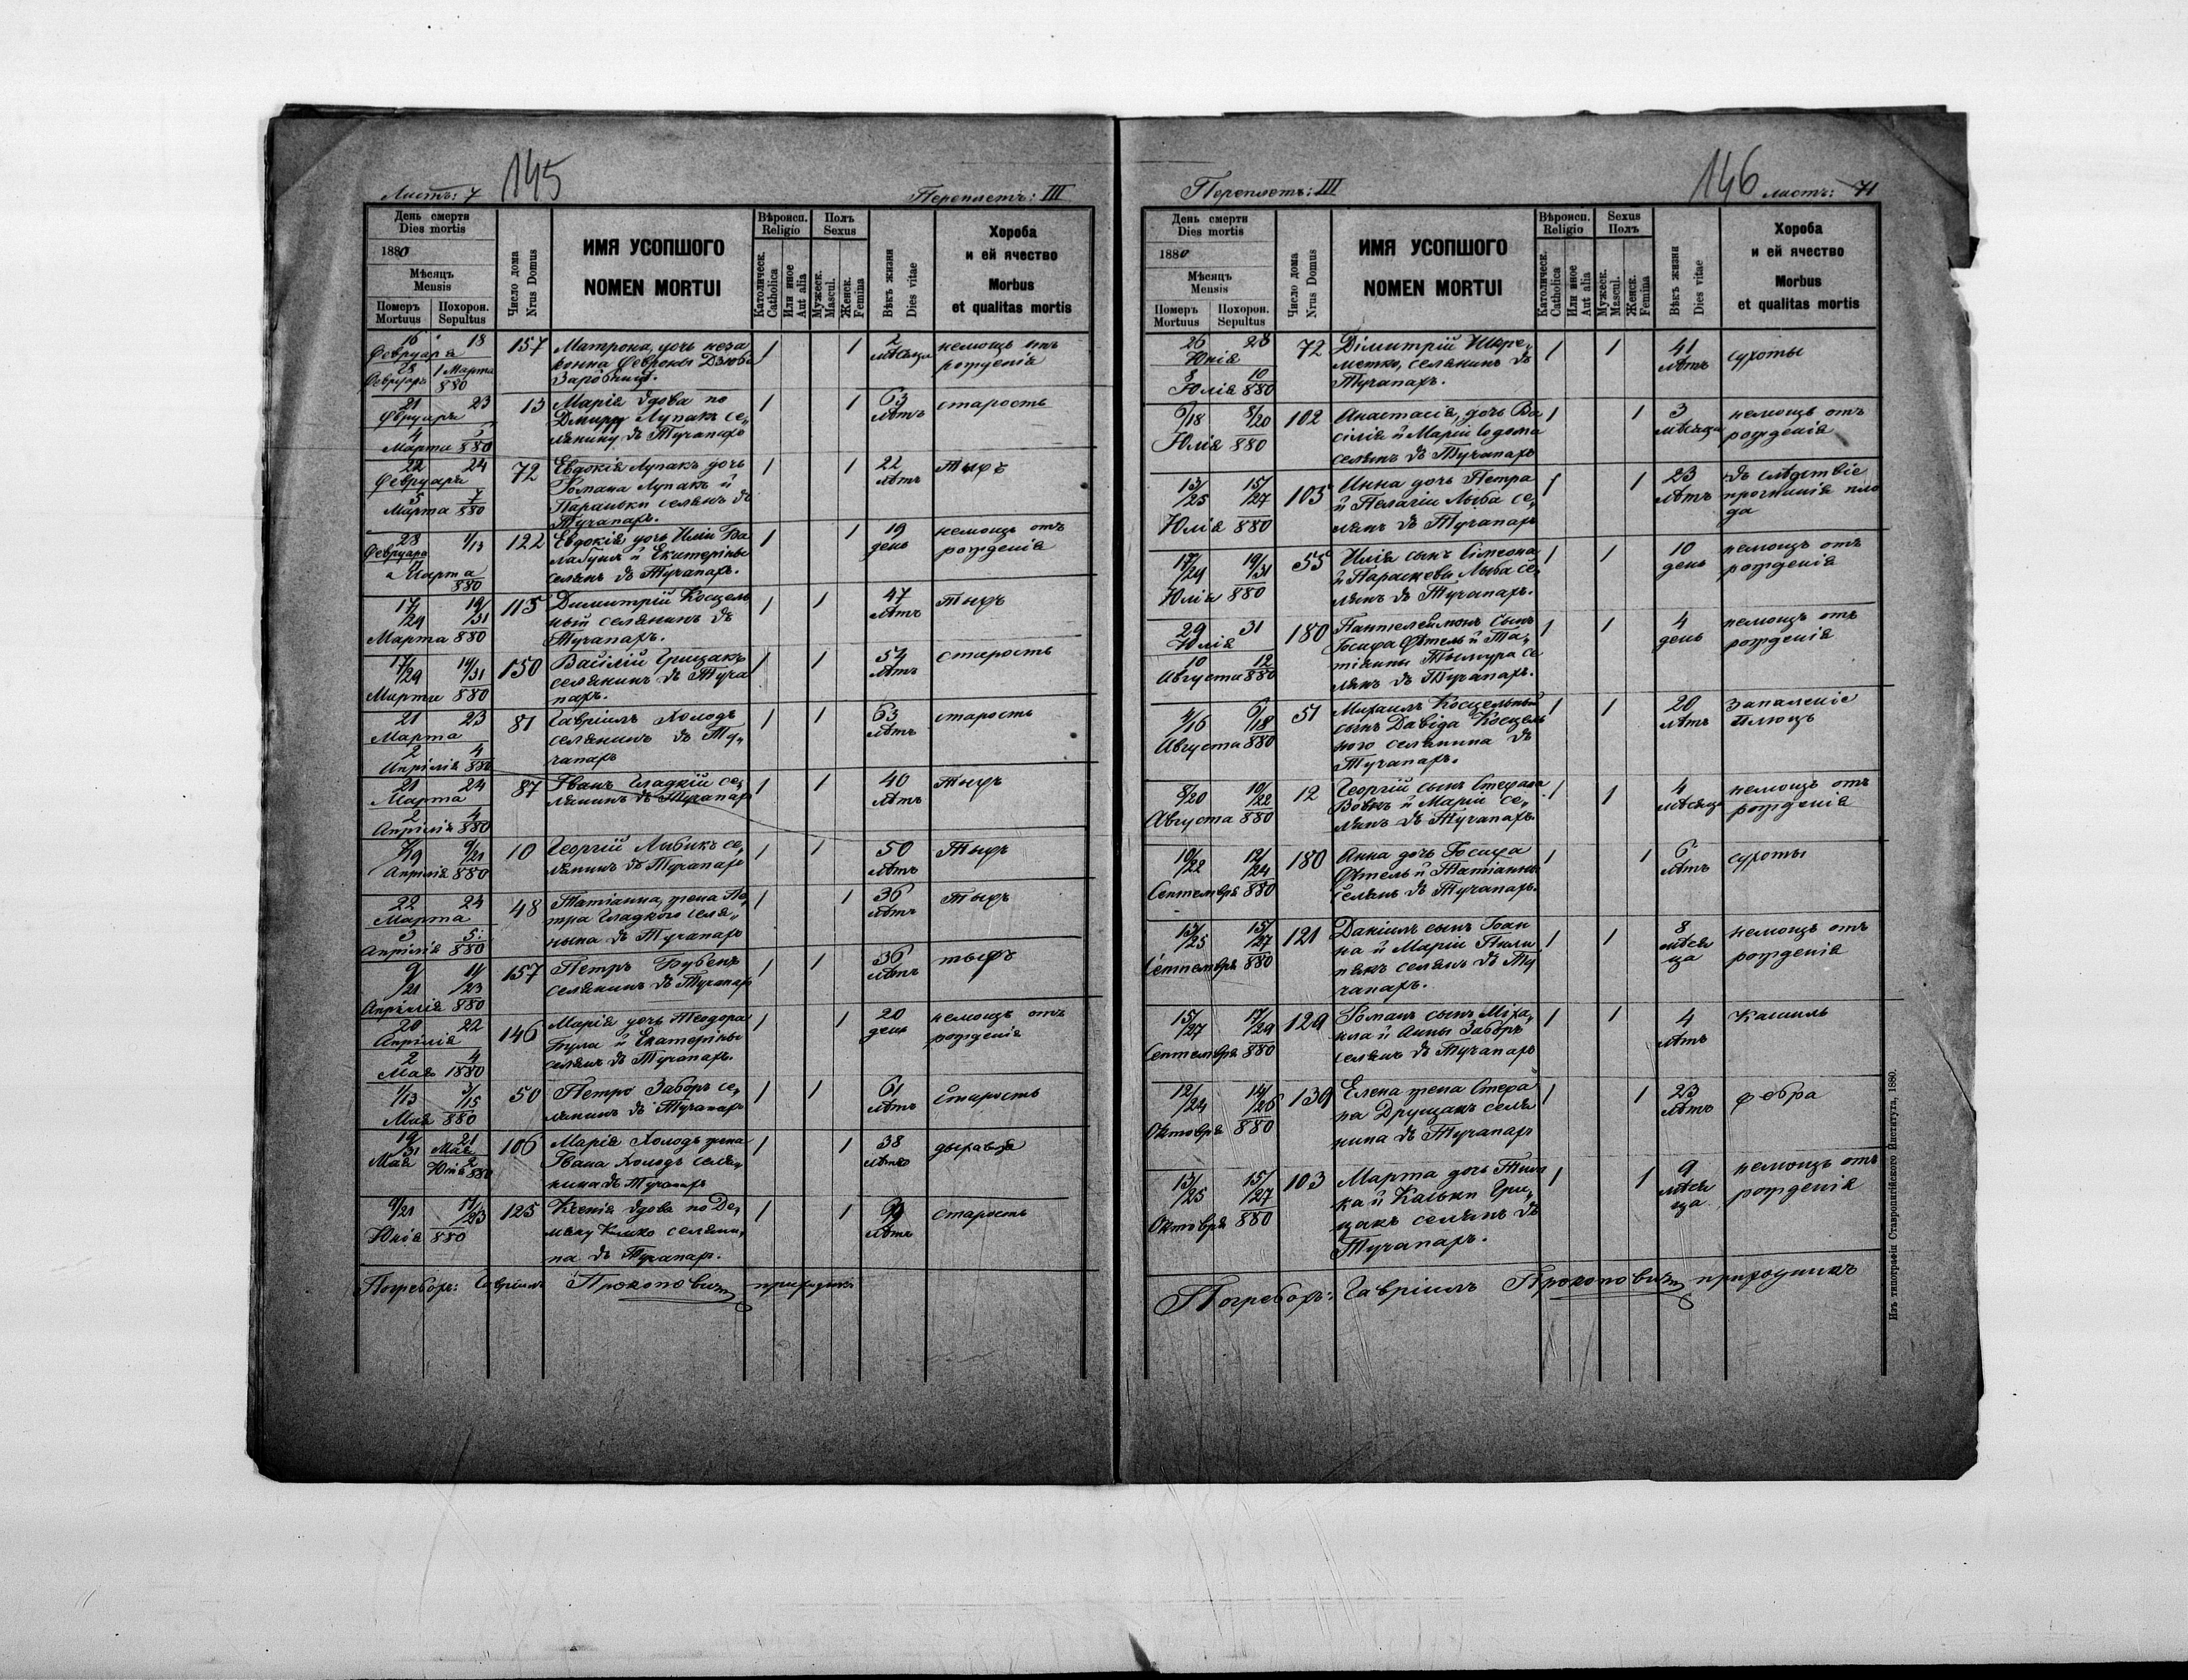 Листъ: 7
145
Переплетъ: III
День смерти
Dies mortis
1880
Мѣсяцъ
Mensis
Померъ
Mortuus
Похорон.
Sepultus
Число дома
Nrus Domus
ИМЯ УСОПШОГО
NOMEN MORTUI
Вѣроисп.
Religio
Католическ.
Catholica
Или иное
Aut alia
Полъ
Sexus
Мужеск.
Mascul.
Женск.
Femina
Вѣкъ жизни
Dies vitae
Хороба
и ей ячество
Morbus
et qualitas mortis
16 18 157 Матрона, дочь неза 1 1 2 немощь отъ
Февруарія конна Февроны Дзюба мѣсяца рожденія
28 1 Марта
Февруарь 880
21 23 13 Марія вдова по 1 1 63 старость
Февруарія Дмитру Лупакъ се„ лѣтъ
4 лянину въ Тучапахъ
Марта 880
22 24 72 Евдокія Лупакъ дочь 1 1 22 Тыфъ
Февруарія Романа Лупакъ и лѣтъ
5 7 Параньки селянъ въ
Марта 880 Тучапахъ.
28 1/13 122 Евдокія дочь Иліи Ба 1 1 19 немощь отъ
Февруара лабуха и Екатерины день рожденія
Марта селянъ въ Тучапахъ.
880
17/29 19/31 115 Димитрій Косцель 1 1 47 Тыфъ
ный селянинъ въ лѣтъ
Марта 880 Тучапахъ.
17/29 19/31 150 Василій Грицакъ 1 1 54 старость
селянинъ въ Туча лѣтъ
Марта 880 пахъ.
21 23 81 Гавріилъ Холодъ 1 1 63 старость
Марта селянинъ въ Ту„ лѣтъ
2 4 чапахъ
Апрілія 880
21 24 87 Іванъ Гладкій се„ 1 1 40 Тыфъ
Марта лянинъ въ Тучапахъ лѣтъ
2 4
Апрілія 880
7/19 9/21 10 Георгій Лыбикъ се„ 1 1 50 Тыфъ
Апрілія 880 лянинъ въ Тучапахъ лѣтъ
22 24 48 Татіанна, жена Пе„ 1 1 36 Тыфъ
Марта тра Гладкого селя„ лѣтъ
3 5 нина въ Тучапахъ
Апрілія 880
9/21 11/23 157 Петръ Бубенъ 1 1 36 тыфъ
селянинъ въ Тучапахъ лѣтъ
Апрілія 880
20 22 146 Марія дочь Теодора 1 1 20 немощь отъ
Апрілія Гула и Екатерины день рожденія
2 4 селянъ въ Тучапахъ.
Мая 1880
1/13 3/15 50 Петро Заборъ се„ 1 1 61 Старость
Мая 880 лянинъ въ Тучапахъ лѣтъ
19/31 21 106 Марія Холодъ жена 1 1 38
Мая Мая Івана Холодъ селя„ лѣтъ
Юнія 2 880 нина въ Тучапахъ
9/21 11/23 125 Ксенія вдова по Де„ 1 1 лѣтъ старость
Юнія 880 селяни„
на въ Тучапахъ.
Погребохъ: Гавріилъ Прокоповичъ приходникъ
Переплетъ: III
146
листъ: 71
День смерти
Dies mortis
1880
Мѣсяцъ
Mensis
Померъ
Mortuus
Похорон.
Sepultus
Число дома
Nrus Domus
ИМЯ УСОПШОГО
NOMEN MORTUI
Вѣроисп.
Religio
Католическ.
Catholica
Или иное
Aut alia
Sexus
Полъ
Мужеск.
Mascul.
Женск.
Femina
Вѣкъ жизни
Dies vitae
Хороба
и ей ячество
Morbus
et qualitas mortis
26 28 72 Дімитрій Шере„ 1 1 41 сухоты
Юнія метко, селянинъ въ лѣтъ
8 10 Тучапахъ.
Юлія 880
6/18 8/20 102 Анастасія, дочь Ва 1 1 3 немощь отъ
силія и Маріи Содома мѣсяца рожденія
Юлія 880 селянъ въ Тучапахъ
13/25 15/27 105 Анна дочь Петра 1 1 23 въ слѣдствіе
и Пелагіи Лыба се„ лѣтъ пло
Юлія 880 лянъ въ Тучапахъ да
17/29 19/31 55 Илія сынъ Сімеона 1 1 10 немощь отъ
и Параскевы Лыба се„ день рожденія
Юлія 880 лянъ въ Тучапахъ.
29 31 180 Пантелеймонъ сынъ 1 1 4 немощь отъ
Юлія Іосифа Фѣтель и Та„ день рожденія
10 12 тіанны се
Августа 880 лянъ въ Тучапахъ.
4/16 6/18 51 Михаилъ Косцельный 1 1 20 Запаленіе
сынъ Давіда Косцель лѣтъ плюцъ
Августа 880 ного селянина въ
Тучапахъ.
8/20 10/22 12 Георгій сынъ Стефана 1 1 4 немощь отъ
Вовкъ и Маріи се„ мѣсяца рожденія
Августа 880 лянъ въ Тучапахъ
10/22 12/24 180 Анна дочь Іосифа 1 1 6 сухоты
Фѣтель и Татіанны лѣтъ
Септемврія 880 селянъ въ Тучапахъ.
13/25 15/27 121 Даніилъ сынъ Іоан 1 1 8 немощь отъ
на и Маріи Пили мѣся рожденія
Септемврія 880 пякъ селянъ въ Ту ца
чапахъ.
15/27 17/29 129 Романъ сынъ Міха„ 1 1 4 Кашель
ила и Анны Заборъ лѣтъ
Септемврія 880 селянъ въ Тучапахъ
12/24 14/26 139 Елена жена Стефа 1 1 23 фебра
на Друщакъ селя лѣтъ
Октоврія 880 нина въ Тучапахъ
13/25 15/27 103 Марта дочь 1 1 9 немощь отъ
ка и Каськи Гри„ мѣся рожденія
Октоврія 880 цакъ селянъ въ ца
Тучапахъ.
Погребохъ: Гавріилъ Прокоповичъ приходникъ
Изъ типографіи Ставропигійского Института, 1880.